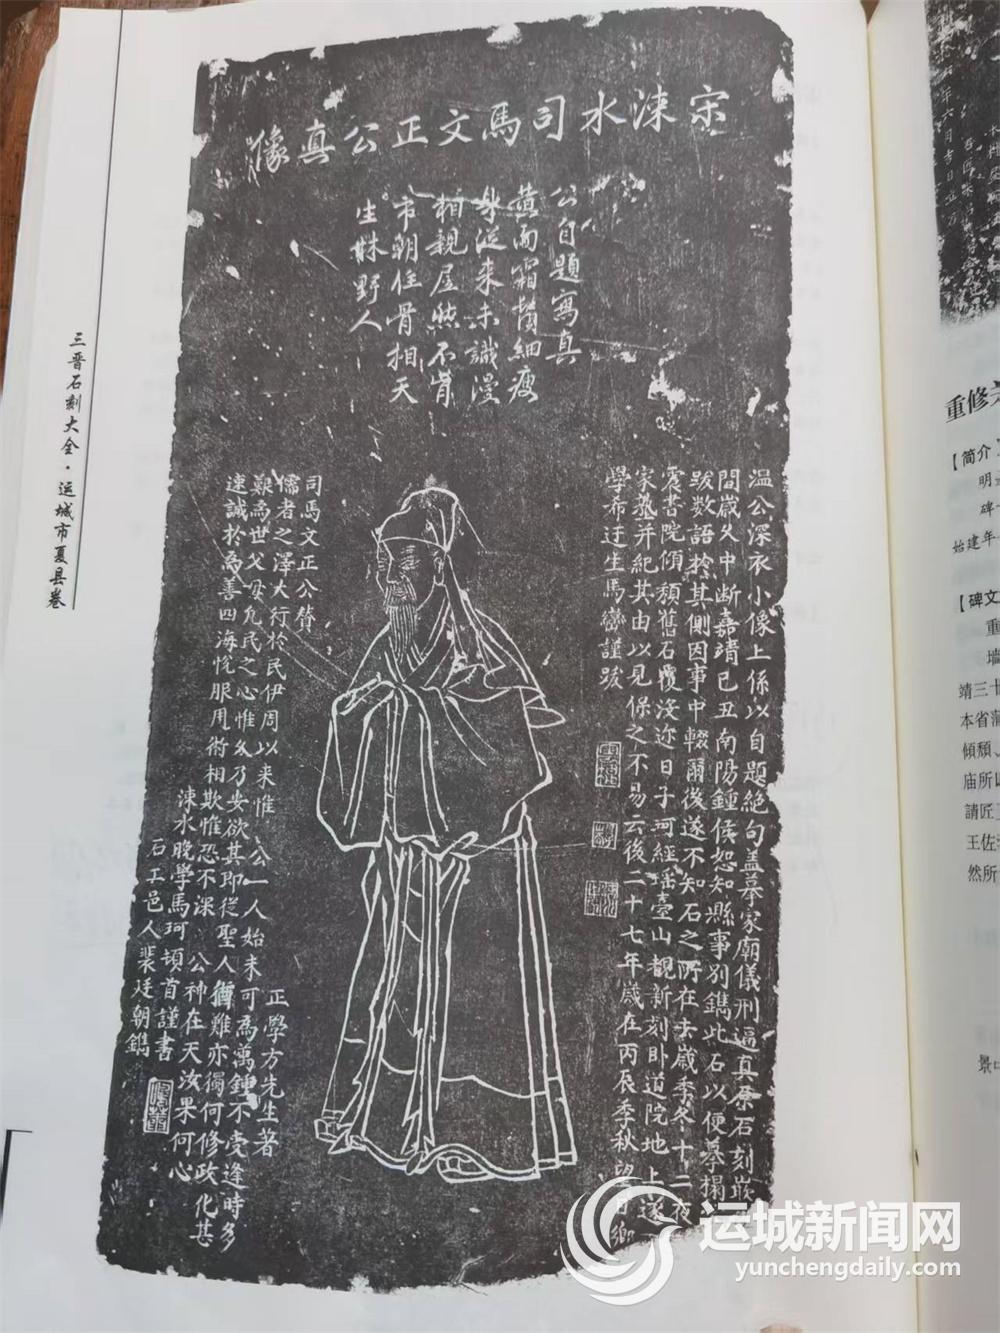 宋涑水司馬文正公真像
公自題寫真
黃面霜鬚細瘦
身從來未識漫
相親居然不肯
市朝住骨相天
生麋野人
溫公深衣小像上係以自題絕句蓋摹家廟儀刑逼真原石刻嵌
間歲久中斷嘉靖己丑南陽鍾侯恕知縣事別鐫此石以便摹搨
跋數語於其側因事中輟爾後遂不知石之所在去歲季冬十二夜
書院傾頹舊石覆沒近日子珂經瑤臺山觀新刻卧道院地上遂
家塾并紀其由以見保之不易云後二十七年歲在丙辰季秋望日鄉
學希迂生馬巒謹跋
司馬文正公贊
正學方先生著
儒者之澤大行於民伊周以來惟公一人始未可為萬鍾不受逢時多
艱為世父母允民之心惟久乃安欲其即從聖人猶難亦獨何修政化甚
速誠於為善四海悅服用術相欺惟恐不深公神在天汝果何心
涑水晚學馬珂頓首謹書
石工邑人裴廷朝鐫
三晋石刻大全·运城市夏县卷
重修关
【简介】
明
碑
始建年
【碑文
重
墙
靖三十
本省蒲
傾頹、
庙所以
請匠
王佐
然所
景
运城新闻网
yunchengdaily.com